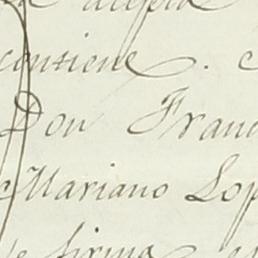 acepta
contiene.
Don Fran
Mariano Lop
firma